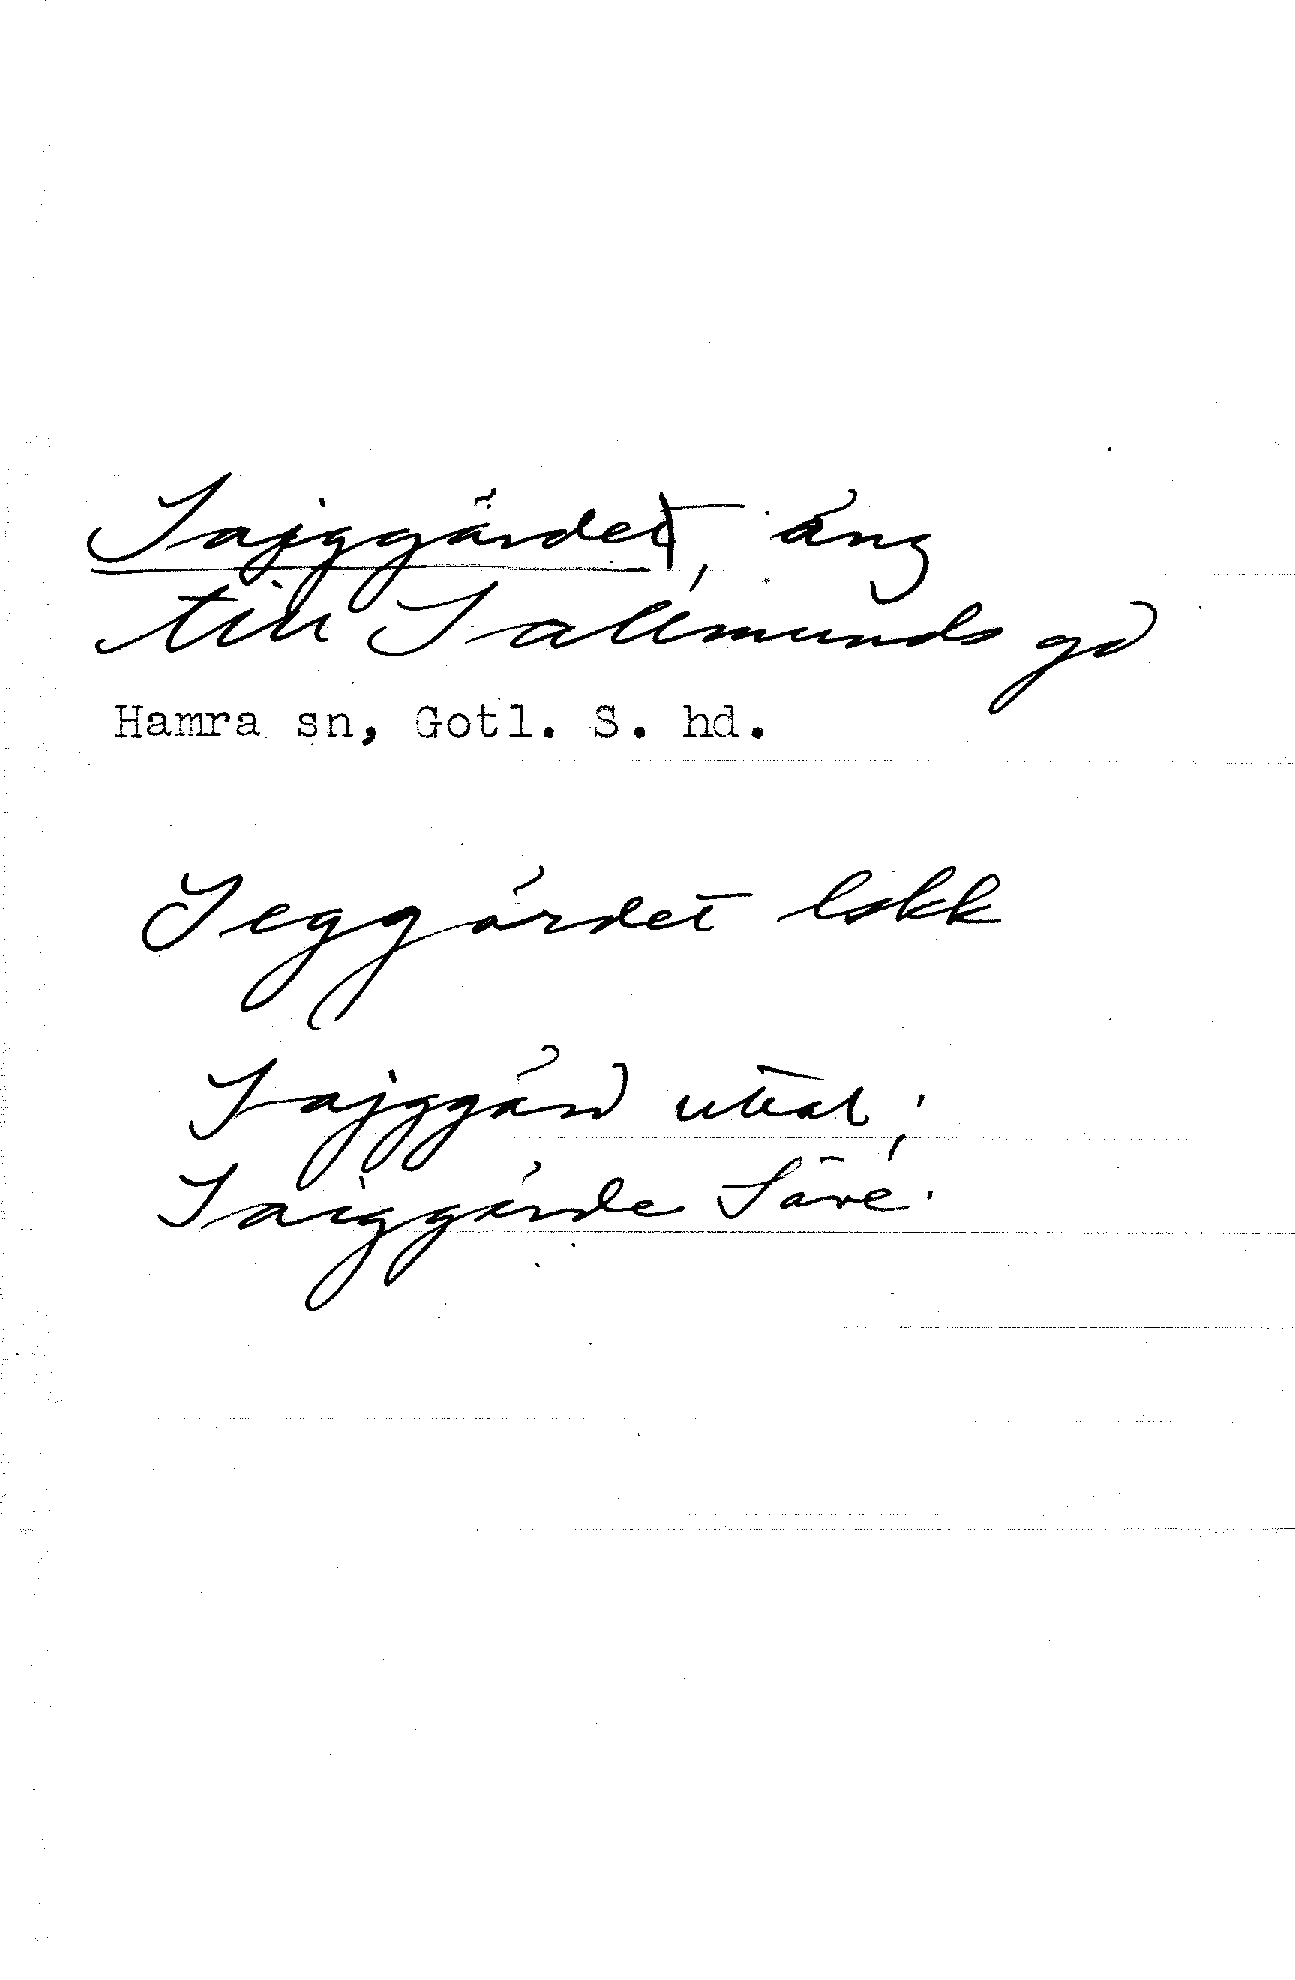 Sajggärdet, äng
till Sallmunds gd
Hamra sn, Gotl. S. hd.
Seggärdet lokk
Sajggärd uttal;
Saiggärde Säve.